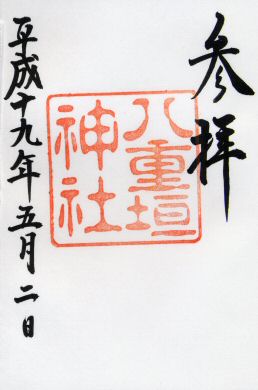 参拝
八重垣
神社
平成十九年五月二日